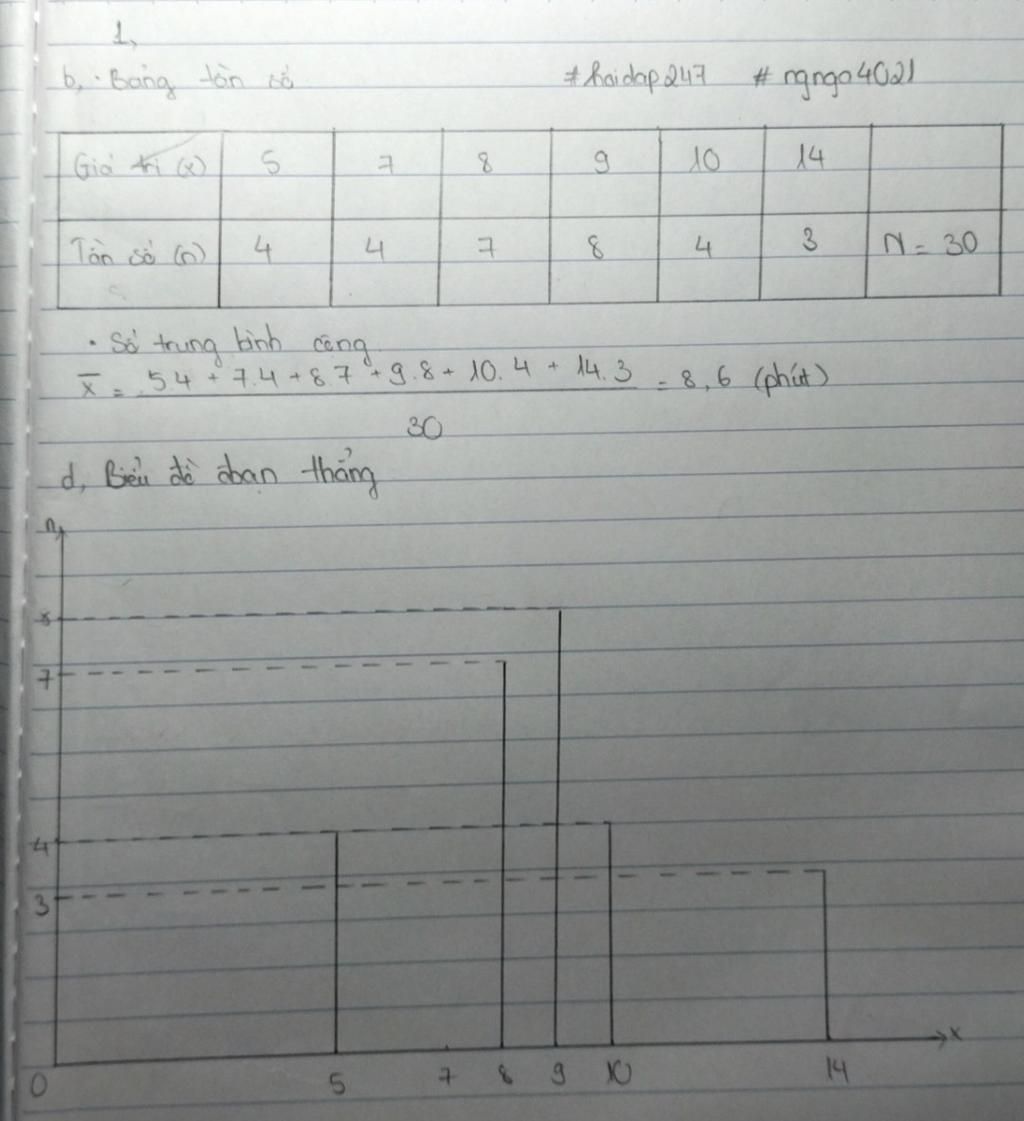 1,
b, · Bảng tần số #hoidap247 #ngnga4021
Giá trị (x) 5 7 8 9 10 14
Tần số (n) 4 4 7 8 4 3 N = 30
· Số trung bình cộng
x̄ = 5.4 + 7.4 + 8.7 + 9.8 + 10.4 + 14.3 = 8,6 (phút)
30
d, Biểu đồ đoạn thẳng
n
8
7
4
3
0 5 7 8 9 10 14 x